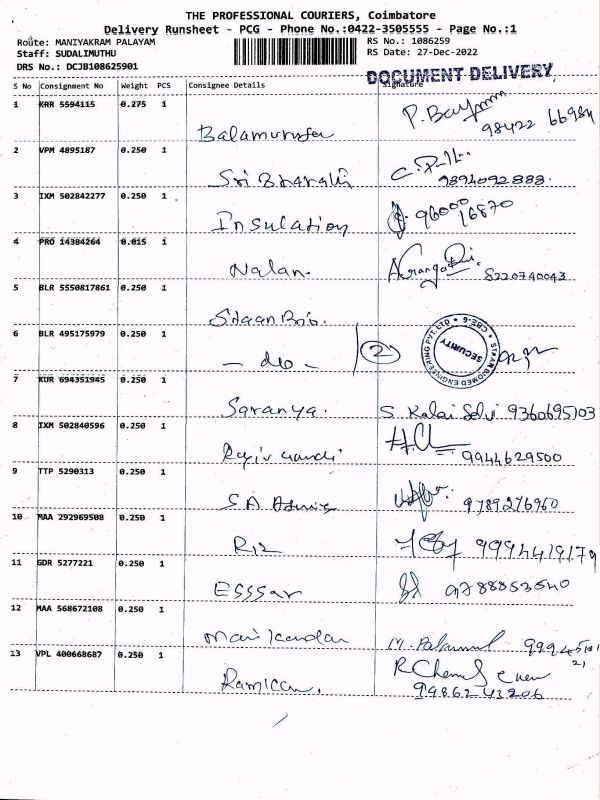 THE PROFESSIONAL COURIERS, Coimbatore
Delivery Runsheet - PCG - Phone No.:0422-3505555 - Page No.:1
Route: MANIYAKRAM PALAYAM RS No.: 1086259
Staff: SUDALIMUTHU RS Date: 27-Dec-2022
DRS No.: DCJB108625901
DOCUMENT DELIVERY
S No Consignment No Weight PCS Consignee Details Signature
1 KRR 5594115 0.275 1
P. 98422 66984
2 VPM 4895187 0.250 1
Sri Bharathi 9894092888
3 IXM 502842277 0.250 1
Insulation 96000 16870
4 PRO 14384264 0.015 1
Nalan. 8220740043
5 BLR 5550817861 0.250 1
6 BLR 495175979 0.250 1
- do - 2
STAAN BIOMED ENGINEERING PVT LTD * CBE-6 * SECURITY
7 KUR 694351945 0.250 1
Saranya. S Kalai Selvi 9360695103
8 IXM 502840596 0.250 1
9944629500
9 TTP 5290313 0.250 1
S A 9789276960
10 MAA 292969508 0.250 1
9994419179
11 GDR 5277221 0.250 1
Esssar 9788853540
12 MAA 568672108 0.250 1
Manikandan M.
13 VPL 400668687 0.250 1
R
9986243206